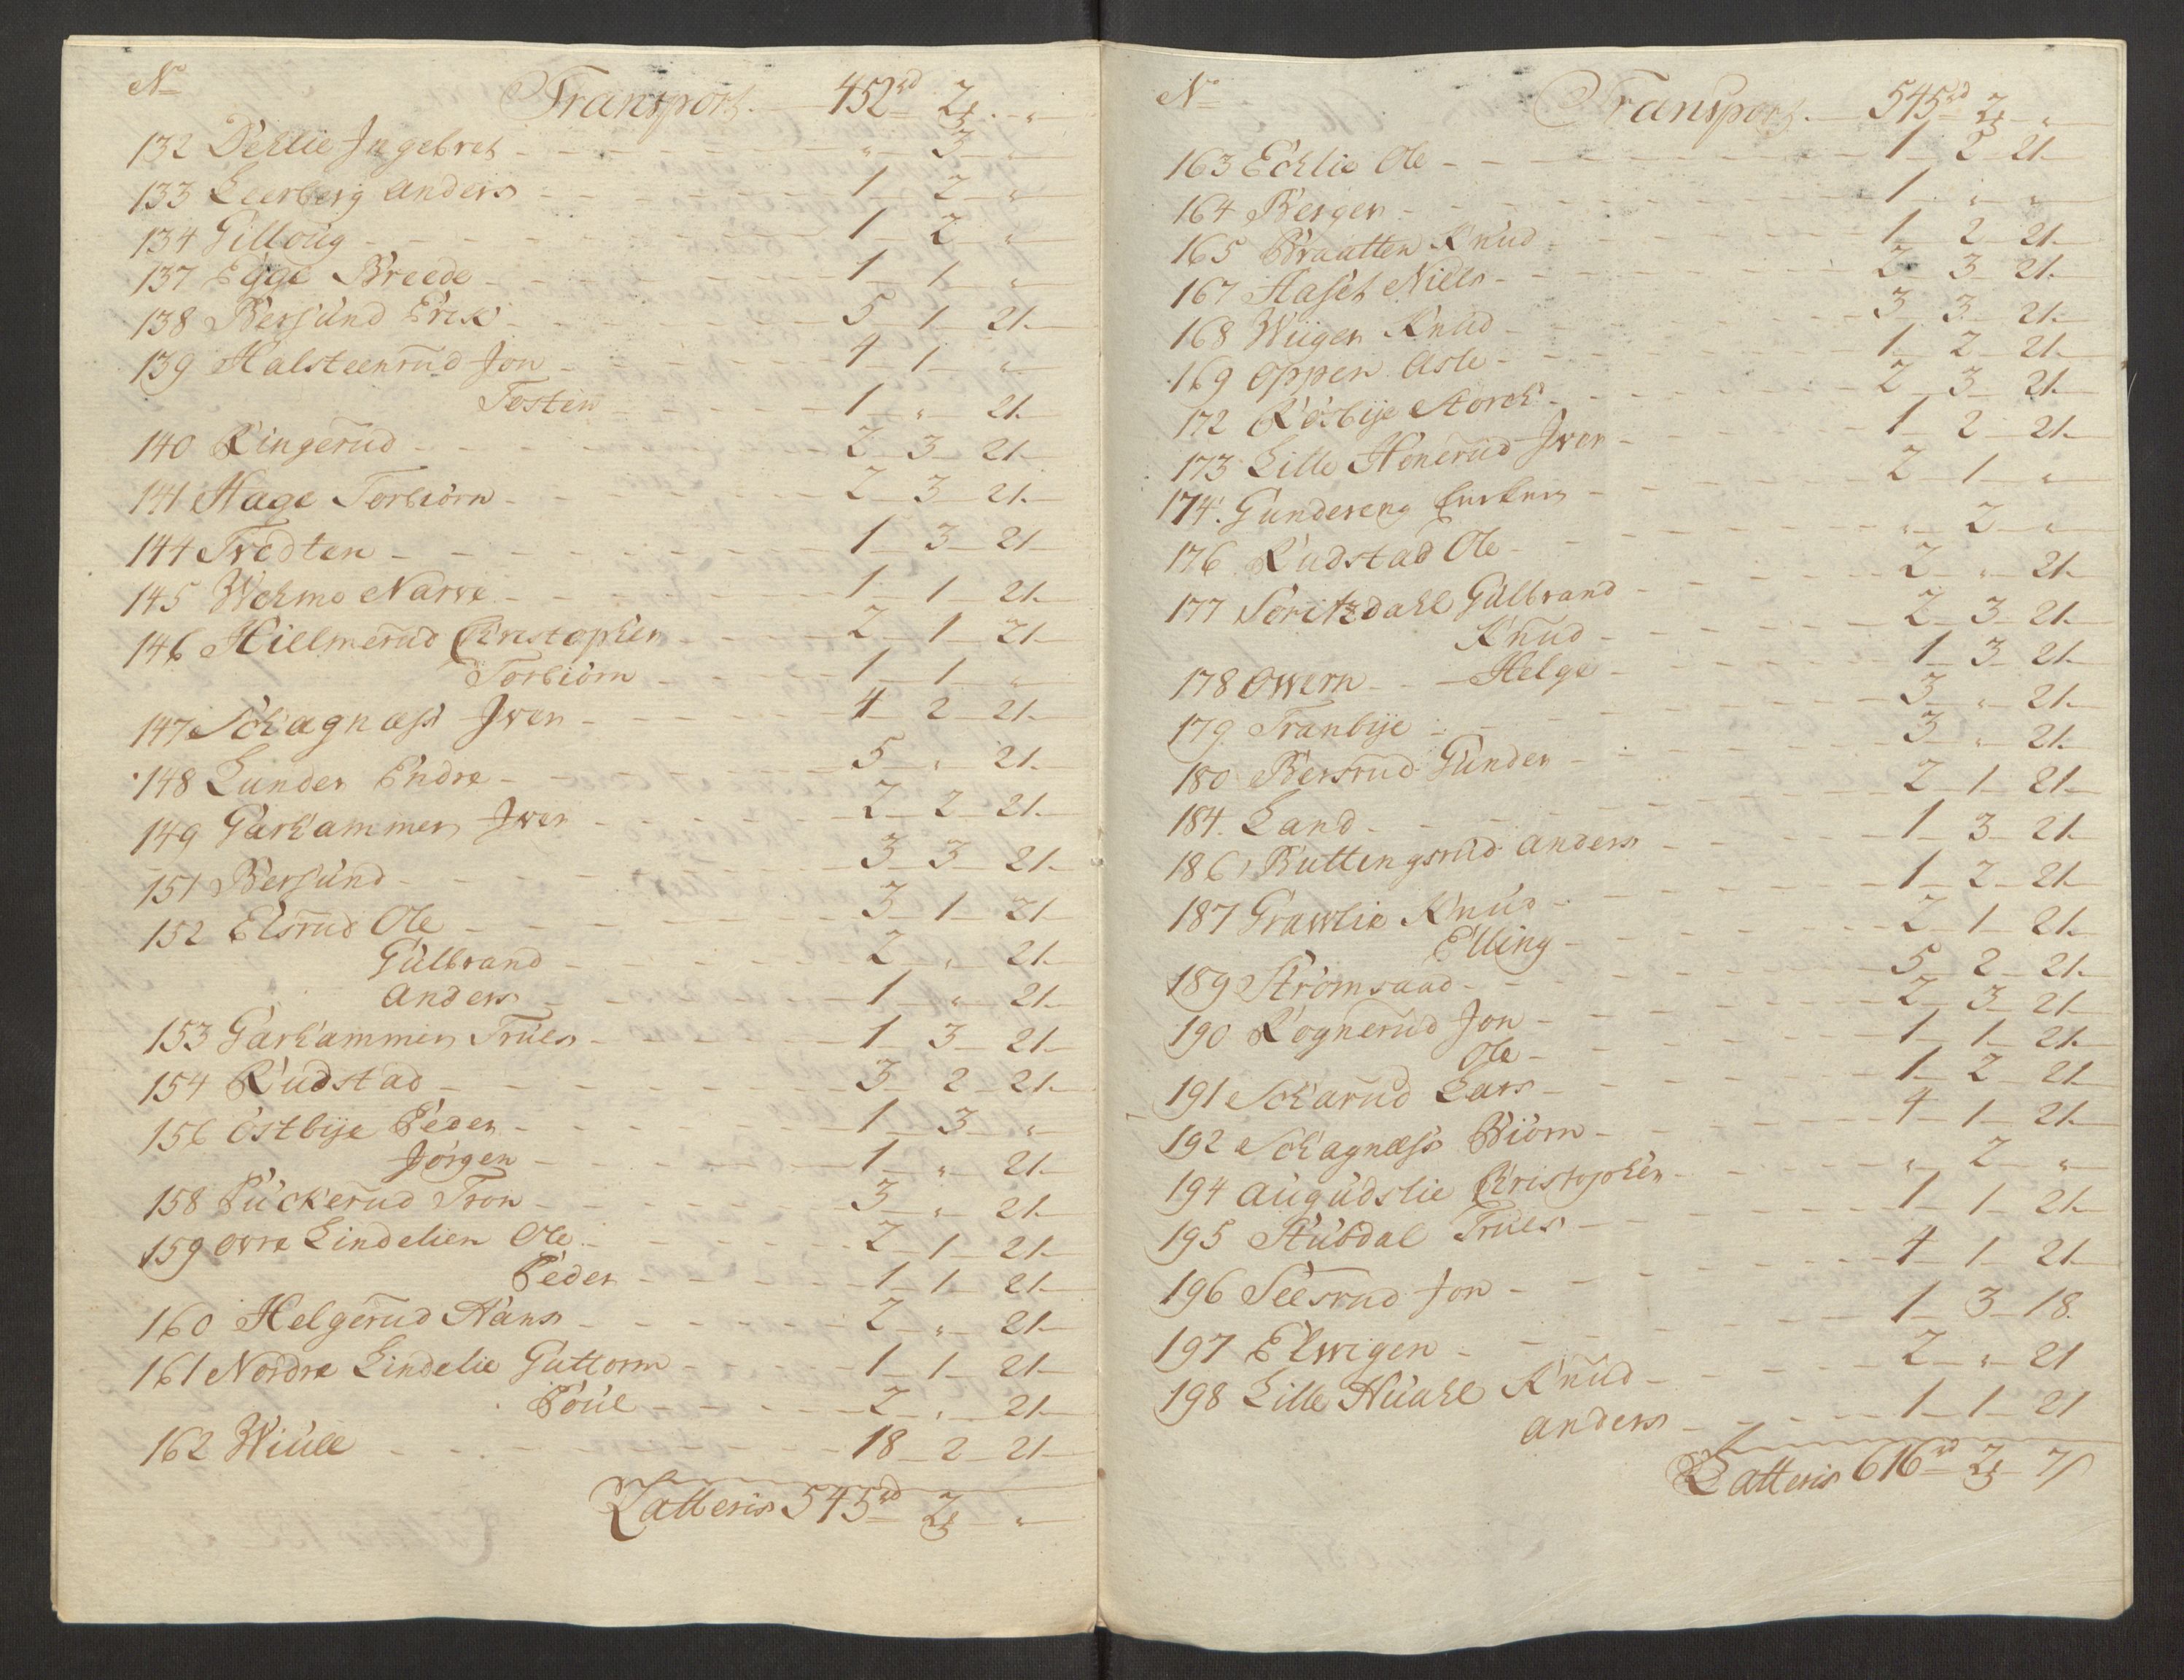 No
Transport. 452rd 2 "
132 Dehlie Ingebret " 3 "
133 Leerberg Anders 1 2 "
134 Gilloug 1 2 "
137 Egge Breede 1 1 "
138 Bersund Erik 5 1 21
139 Halsteenrud Jon 4 1 "
Tosten 1 " 21
140 Ringerud 2 3 21
141 Hage Torbiörn 2 3 21
144 Tvedten 1 3 21
145 Wehmo Narve 1 1 21
146 Hielmerud Christopher 2 1 21
Torbiörn 1 1 "
147 Schagnæss Iver 4 2 21
148 Lunder Endre 5 " 21
149 Garhammer Iver 2 2 21
151 Bersund 3 3 21
152 Elsrud Ole 3 1 21
Gulbrand 2 " 21
Anders 1 " 21
153 Garhammer Truls 1 3 21
154 Rudstad 3 2 21
156 Östbye Peder 1 3 "
Jörgen 1 " 21
158 Puckerud Tron 3 " 21
159 Ovre Lindelien Ole 2 1 21
Peder 1 1 21
160 Helgerud Hans 2 " 21
161 Nordre Lindelie Guttorm 1 1 21
Poul 2 " 21
162 Wiull 18 2 21
Latteris 545rd 2 "
No
Transport. 545rd 2 "
163 Echlie Ole 1 2 21
164 Berger 1 " "
165 Braatten Knud 1 2 21
167 Haset Niels 2 3 21
168 Wiiger Knud 3 3 21
169 Oppen Asle 1 2 21
172 Rösbye Storch 2 3 21
173 Lille Honerud Iver 1 2 21
174 Gundereng 2 1 "
176 Rudstad Ole " 2 "
177 Soritzdahl Gulbrand 2 " 21
Knud 2 3 21
178 Owern Helge 1 3 21
179 Tranbye 3 " 21
180 Bersrud Gunder 3 " 21
184 Land 2 1 21
186 Buttingsrud Anders 1 3 21
187 Grawlie Knud 1 2 21
Elling 2 1 21
189 Strömsaad 5 2 21
190 Rognerud Jon 2 3 21
Ole 1 1 21
191 Scharud Lars 1 2 21
192 Schagnæss Biörn 4 1 21
194 Augudslie Christopher " 2 "
195 Stubdal Truls 1 1 21
196 Seesrud Jon 4 1 21
197 Elwigen 1 3 18
198 Lille Huahl Knud 2 " 21
Anders 1 1 21
Latteris 616rd 2 7